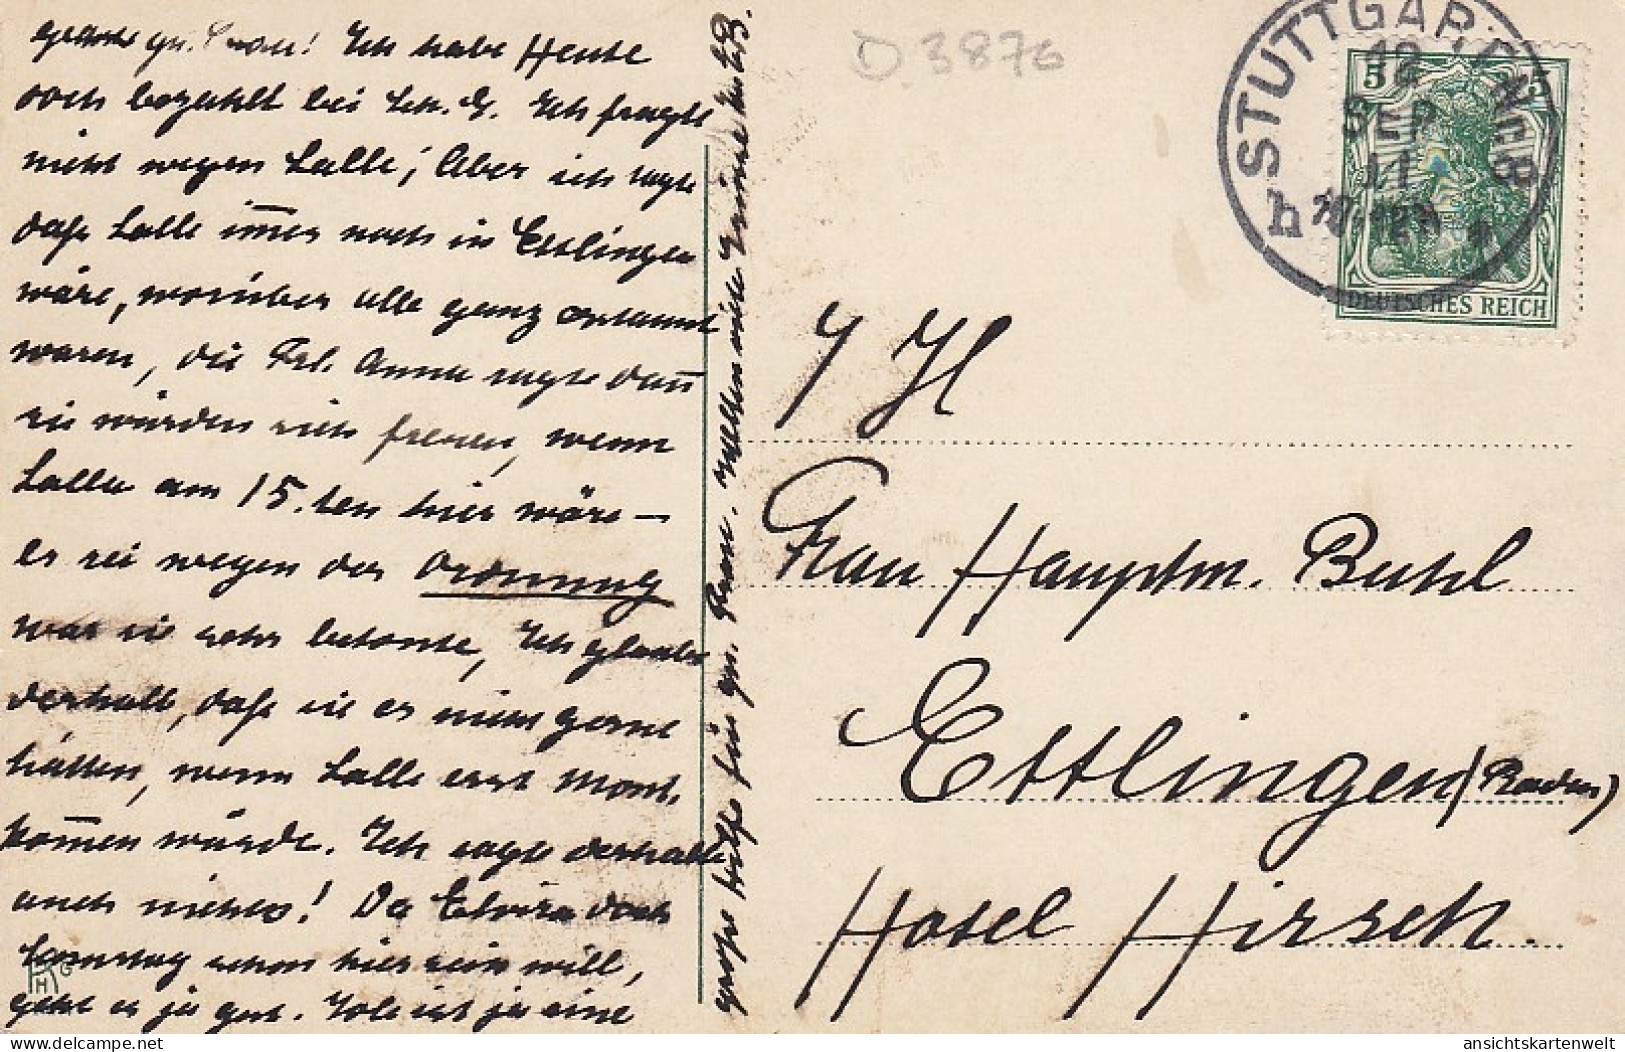 gn. Frau! Ich habe Heute
doch bezahlt bei Sch. G. Ich fragte
nicht wegen Lalle; Aber ich sagte
daß Lalle im̅er noch in Ettlingen
wäre, worüber alle ganz erstaunt
waren, die Frl. Anna sagte dan̅
sie würden sich freuen, wenn
Lalle am 15.ten hier wäre —
es sei wegen der Ordnung
was sie sehr betonte, Ich glaube
deshalb, daß sie es nicht gerne
hätten, wenn Lalle erst Mont.
kom̅en würde. Ich sagte deshalb
auch nichts! Da Elvira doch
Samstag schon hier sein will,
geht es ja gut. Sole ist ja eine
große Hilfe für gn. Frau.
D 3876
STUTTGART Nr 8
12
SEP
11
h
5
5
DEUTSCHES REICH
I. H
Frau Hauptm. Buhl
Ettlingen (Baden)
Hotel Hirsch.
HG
https://www.delcampe.net
ansichtskartenwelt